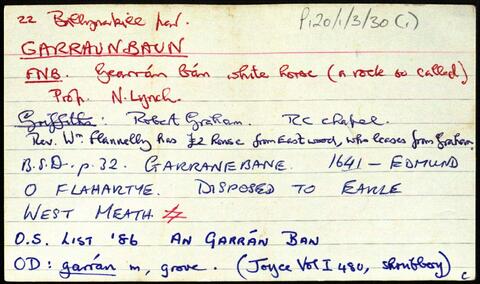 22 Ballynakill par. P120/1/3/30 (i)
GARRAUNBAUN
FNB. Gearrán Bán white horse (a rock so called)
Prop. N. Lynch.
Griffiths: Robert Graham. RC chapel.
Rev. Wm Flannelly has £2 house from Eastwood, who leases from Graham.
B.S.D. p.32. GARRANEBANE. 1641 – EDMUND
O FLAHARTYE. DISPOSED TO EARLE
WEST MEATH
O.S. LIST '86 AN GARRÁN BAN
OD: garrán m, grove. (Joyce Vol I 480, shrubbery)
c